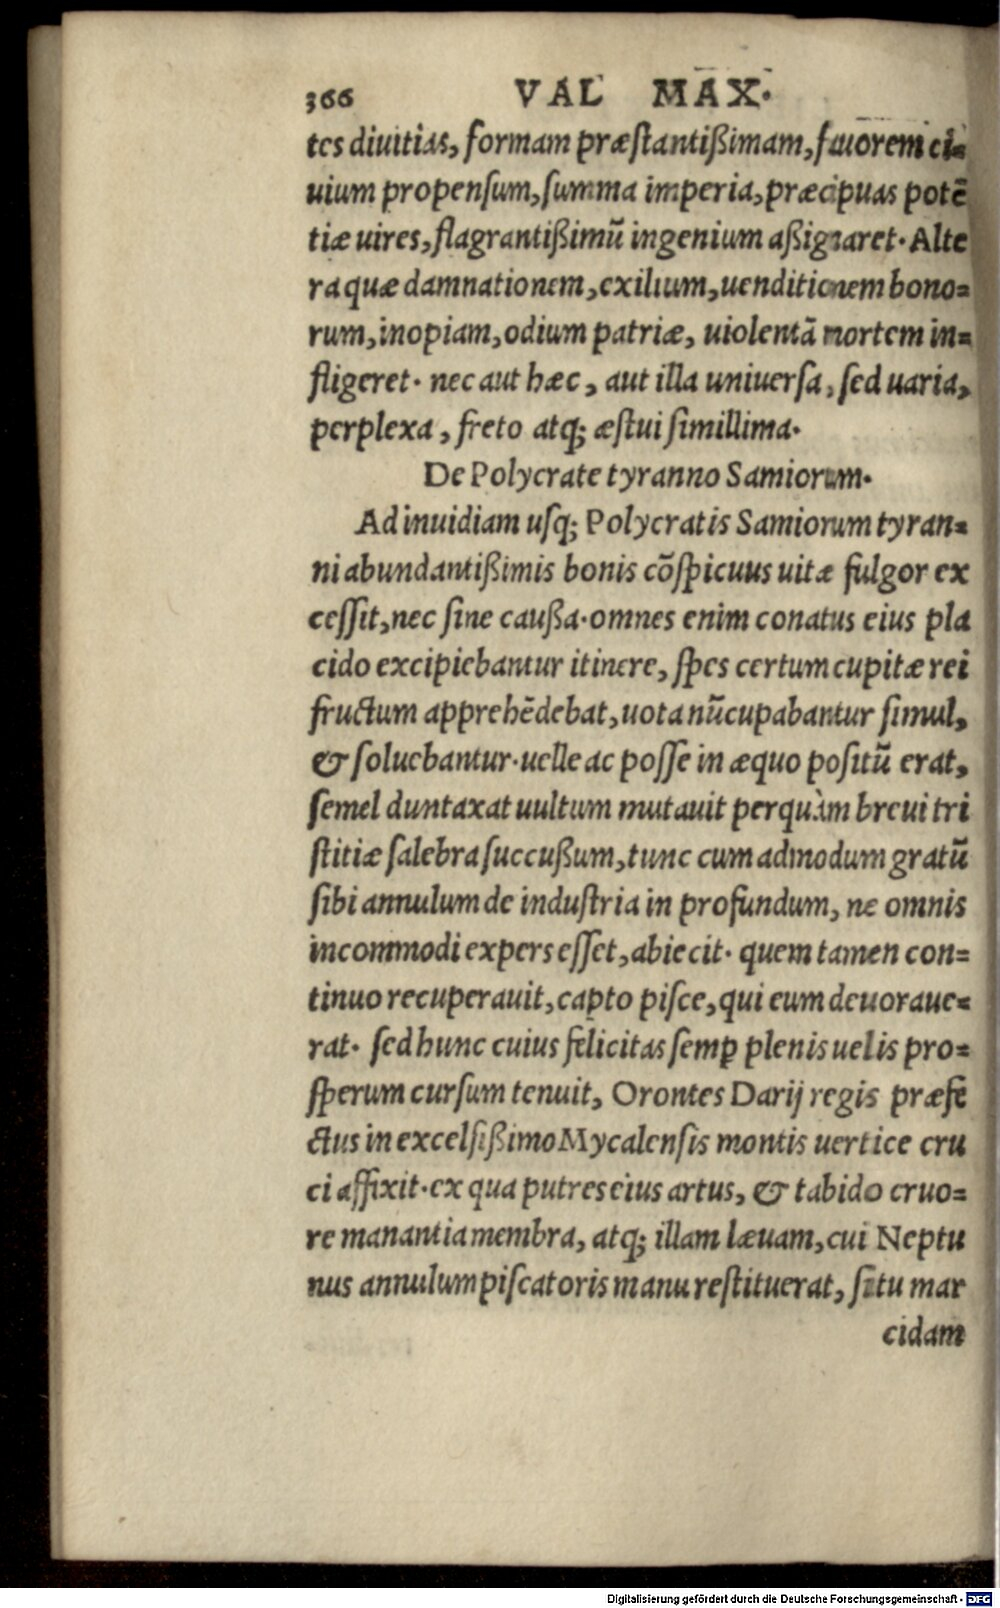 366 VAL MAX.
tes diuitias, formam præstantißimam, fauorem ci-
uium propensum, summa imperia, præcipuas potē
tiæ uires, flagrantißimū ingenium aßignaret. Alte
ra quæ damnationem, exilium, uenditionem bono-
rum, inopiam, odium patriæ, uiolentā mortem in-
fligeret. nec aut hæc, aut illa uniuersa, sed uaria,
perplexa, freto atq; æstui simillima.
De Polycrate tyranno Samiorum.
Ad inuidiam usq; Polycratis Samiorum tyran-
ni abundantißimis bonis cōspicuus uitæ fulgor ex
cessit, nec sine caußa. omnes enim conatus eius pla
cido excipiebantur itinere, spes certum cupitæ rei
fructum apprehēdebat, uota nūcupabantur simul,
& soluebantur. uelle ac posse in æquo positū erat,
semel duntaxat uultum mutauit perquàm breui tri
stitiæ salebra succußum, tunc cum admodum gratū
sibi annulum de industria in profundum, ne omnis
incommodi expers esset, abiecit. quem tamen con-
tinuo recuperauit, capto pisce, qui eum deuoraue-
rat. sed hunc cuius felicitas semꝑ plenis uelis pro-
sperum cursum tenuit, Orontes Darij regis præfe
ctus in excelsißimo Mycalensis montis uertice cru
ci affixit. ex qua putres eius artus, & tabido cruo-
re manantia membra, atq; illam læuam, cui Neptu
nus annulum piscatoris manu restituerat, situ mar
cidam
Digitalisierung gefördert durch die Deutsche Forschungsgemeinschaft - DFG